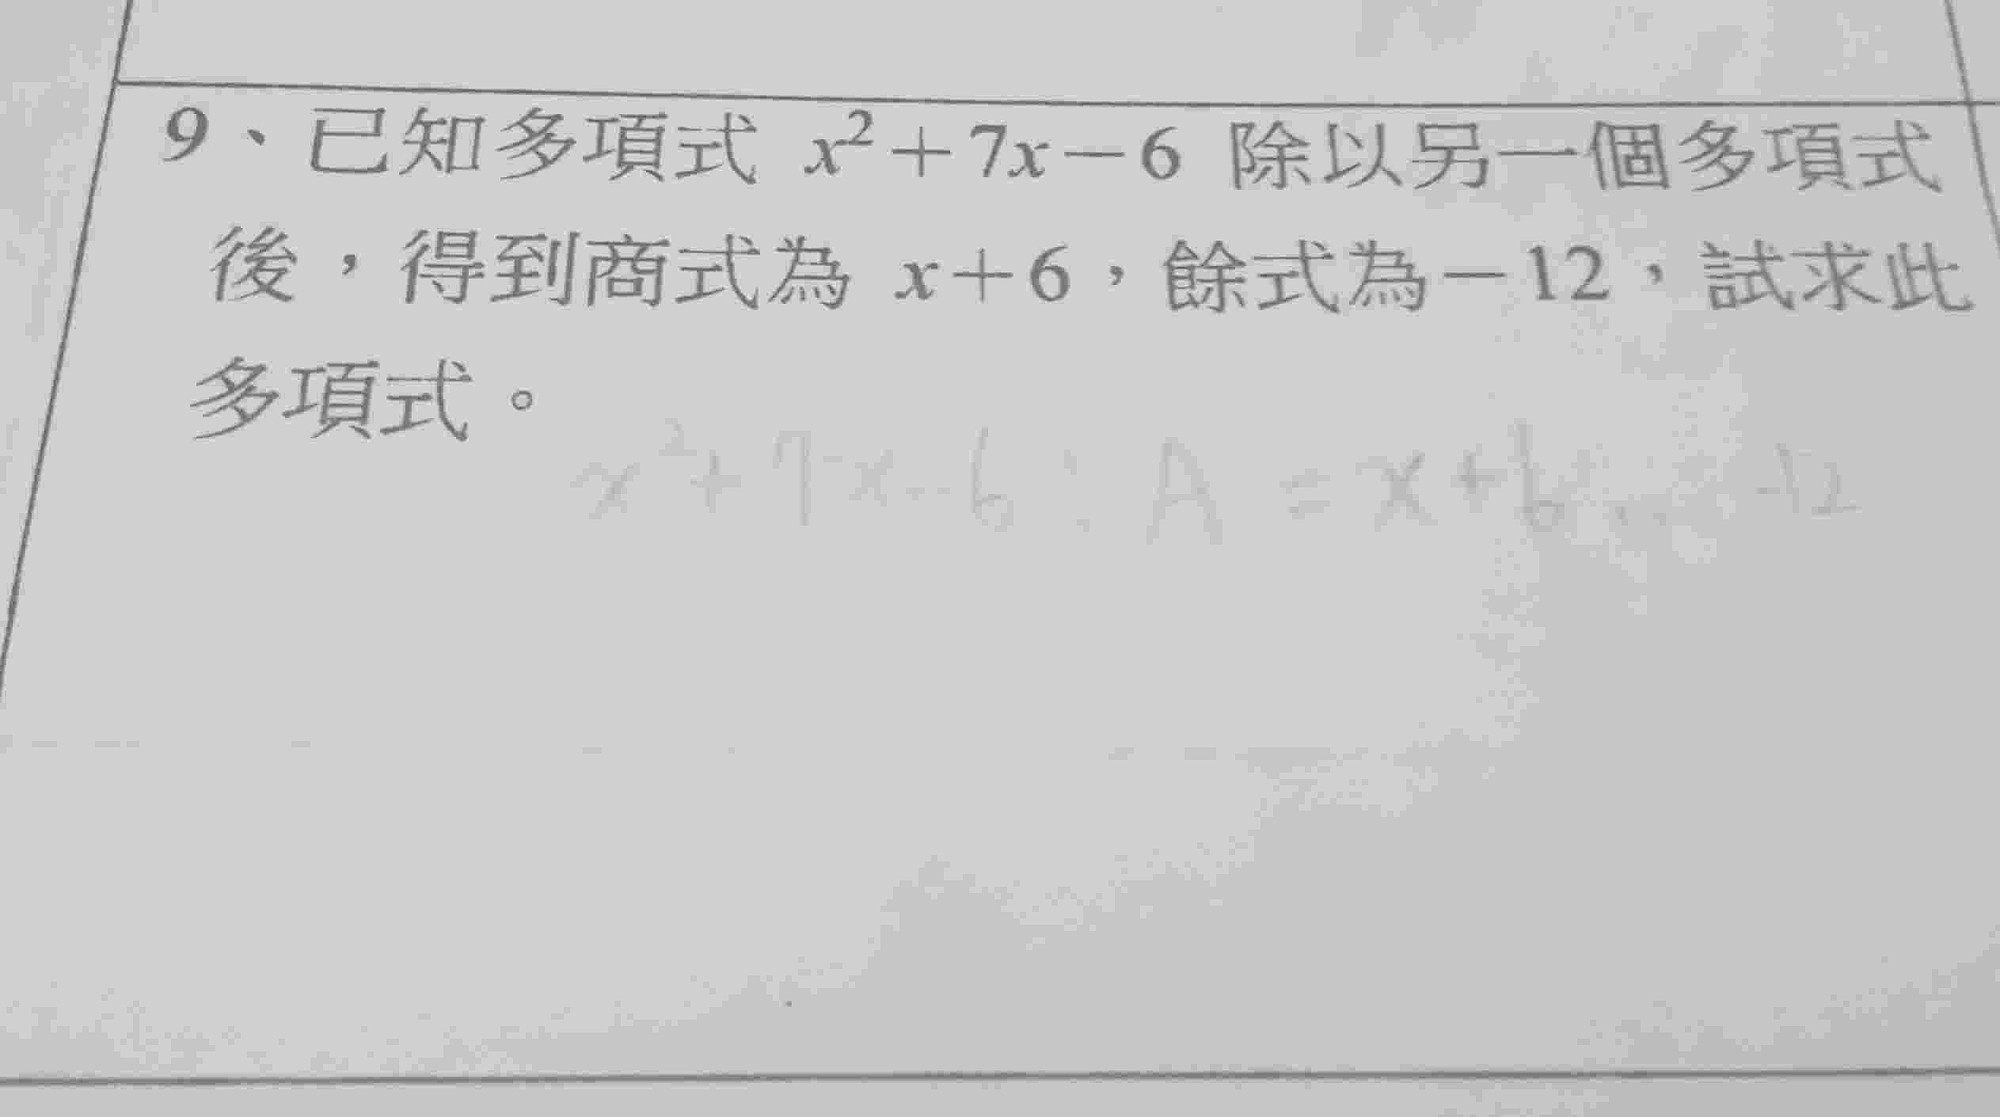 9、已知多項式 x²+7x－6 除以另一個多項式
後，得到商式為 x+6，餘式為－12，試求此
多項式。
x²+7x-6 ÷ A = x+6 ... -12